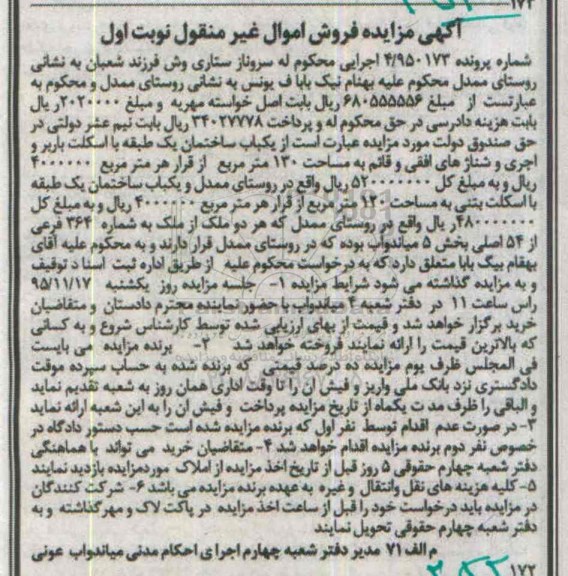 ۱۷۳
آگهی مزایده فروش اموال غیر منقول نوبت اول
شماره پرونده ۴/۹۵۰۱۷۳ اجرایی محکوم له سروناز ستاری وش فرزند شعبان به نشانی
روستای ممدل محکوم علیه بهنام نیک بابا ف یونس به نشانی روستای ممدل و محکوم به
عبارتست از مبلغ ۶۸۰۵۵۵۵۵۶ ریال بابت اصل خواسته مهریه و مبلغ ۲۰۲۰۰۰۰ ریال
بابت هزینه دادرسی در حق محکوم له و پرداخت ۳۴۰۲۷۷۷۸ ریال بابت نیم عشر دولتی در
حق صندوق دولت مورد مزایده عبارت است از یکباب ساختمان یک طبقه با اسکلت باربر و
اجری و شناژ های افقی و قائم به مساحت ۱۳۰ متر مربع از قرار هر متر مربع ۴۰۰۰۰۰۰
ریال و به مبلغ کل ۵۲۰۰۰۰۰۰۰ ریال واقع در روستای ممدل و یکباب ساختمان یک طبقه
با اسکلت بتنی به مساحت ۱۲۰ متر مربع از قرار هر متر مربع ۴۰۰۰۰۰۰ ریال و به مبلغ کل
۴۸۰۰۰۰۰۰۰ ریال واقع در روستای ممدل که هر دو ملک از ملک به شماره ۳۶۴ فرعی
از ۵۴ اصلی بخش ۵ میاندوآب بوده که در روستای ممدل قرار دارند و به محکوم علیه آقای
بهنام بیگ بابا متعلق دارد که به درخواست محکوم علیه از طریق اداره ثبت اسناد توقیف
و به مزایده گذاشته می شود شرایط مزایده ۱- جلسه مزایده روز یکشنبه ۹۵/۱۱/۱۷
راس ساعت ۱۱ در دفتر شعبه ۴ میاندواب با حضور نماینده محترم دادستان و متقاضیان
خرید برگزار خواهد شد و قیمت از بهای ارزیابی شده توسط کارشناس شروع و به کسانی
که بالاترین قیمت را ارائه نمایند فروخته خواهد شد ۲- برنده مزایده می بایست
فی المجلس ظرف یوم مزایده ده درصد قیمتی که برنده شده به حساب سپرده موقت
دادگستری نزد بانک ملی واریز و فیش ان را تا وقت اداری همان روز به شعبه تقدیم نماید
و الباقی را ظرف مدت یکماه از تاریخ مزایده پرداخت و فیش ان را به این شعبه ارائه نماید
۳- در صورت عدم اقدام توسط نفر اول که برنده مزایده شده است حسب دستور دادگاه در
خصوص نفر دوم برنده مزایده اقدام خواهد شد ۴- متقاضیان خرید می تواند با هماهنگی
دفتر شعبه چهارم حقوقی ۵ روز قبل از تاریخ اخذ مزایده از املاک موردمزایده بازدید نمایند
۵- کلیه هزینه های نقل وانتقال و غیره به عهده برنده مزایده می باشد ۶- شرکت کنندگان
در مزایده باید درخواست خود را قبل از ساعت اخذ مزایده در پاکت لاک و مهر گذاشته و به
دفتر شعبه چهارم حقوقی تحویل نمایند
م الف ۷۱ مدیر دفتر شعبه چهارم اجرای احکام مدنی میاندواب عونی
۱۷۲